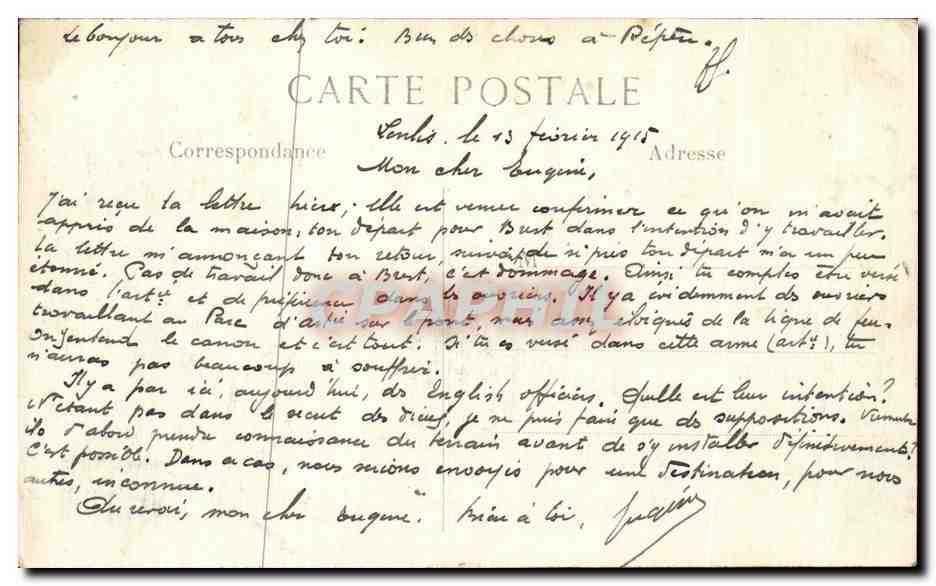 Le bonjour à tous chez toi. Bien des choses à Pépère.
CARTE POSTALE
Senlis. le 13 février 1915
Correspondance
Adresse
Mon cher Eugène,
J'ai reçu ta lettre hier; elle est venue confirmer ce qu'on m'avait
appris de la maison, ton départ pour Brest dans l'intention d'y travailler.
ta lettre m'annonçant ton retour, suivant de si près ton départ m'a un peu
étonné. Pas de travail donc à Brest, c'est dommage. Ainsi tu comptes être versé
dans l'artie et de préférence dans les ouvriers. Il y a évidemment des ouvriers
travaillant au Parc d'artie sur le front, mais assez éloignés de la ligne de feu.
On entend le canon et c'est tout. Si tu es versé dans cette arme (artie), tu
n'auras pas beaucoup à souffrir.
Il y a par ici, aujourd'hui, des English officiers. Quelle est leur intention?
N'étant pas dans le secret des dieux, je ne puis faire que des suppositions.
ils d'abord prendre connaissance du terrain avant de s'y installer définitivement?
C'est possible. Dans ce cas, nous serions envoyés pour une destination, pour nous
autres, inconnue.
Au revoir, mon cher Eugène. Bien à toi,
CPAPHIL